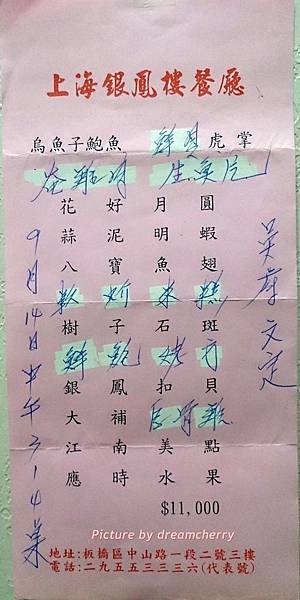 上海銀鳳樓餐廳
烏魚子鮑魚 鮮貝虎掌
生魚片
花好月圓
蒜泥明蝦
八寶魚翅
軟炸米糕
樹子石斑
鮮鮑烤方
銀鳳扣貝
大補
江南美點
應時水果
$11,000
9月14日中午3-4桌
吳府文定
Picture by dreamcherry
地址:板橋區中山路一段二號三樓
電話:二九五五三三三六(代表號)